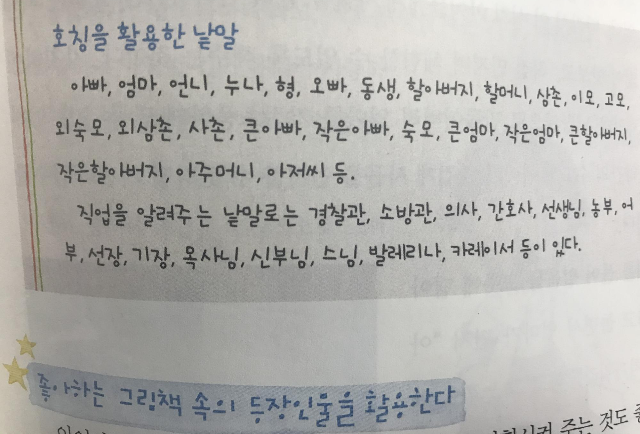 호칭을 활용한 낱말
아빠, 엄마, 언니, 누나, 형, 오빠, 동생, 할아버지, 할머니, 삼촌, 이모, 고모,
외숙모, 외삼촌, 사촌, 큰아빠, 작은아빠, 숙모, 큰엄마, 작은엄마, 큰할아버지,
작은할아버지, 아주머니, 아저씨 등.
직업을 알려주는 낱말로는 경찰관, 소방관, 의사, 간호사, 선생님, 농부, 어
부, 선장, 기장, 목사님, 신부님, 스님, 발레리나, 카레이서 등이 있다.
좋아하는 그림책 속의 등장인물을 활용한다
주는 것도